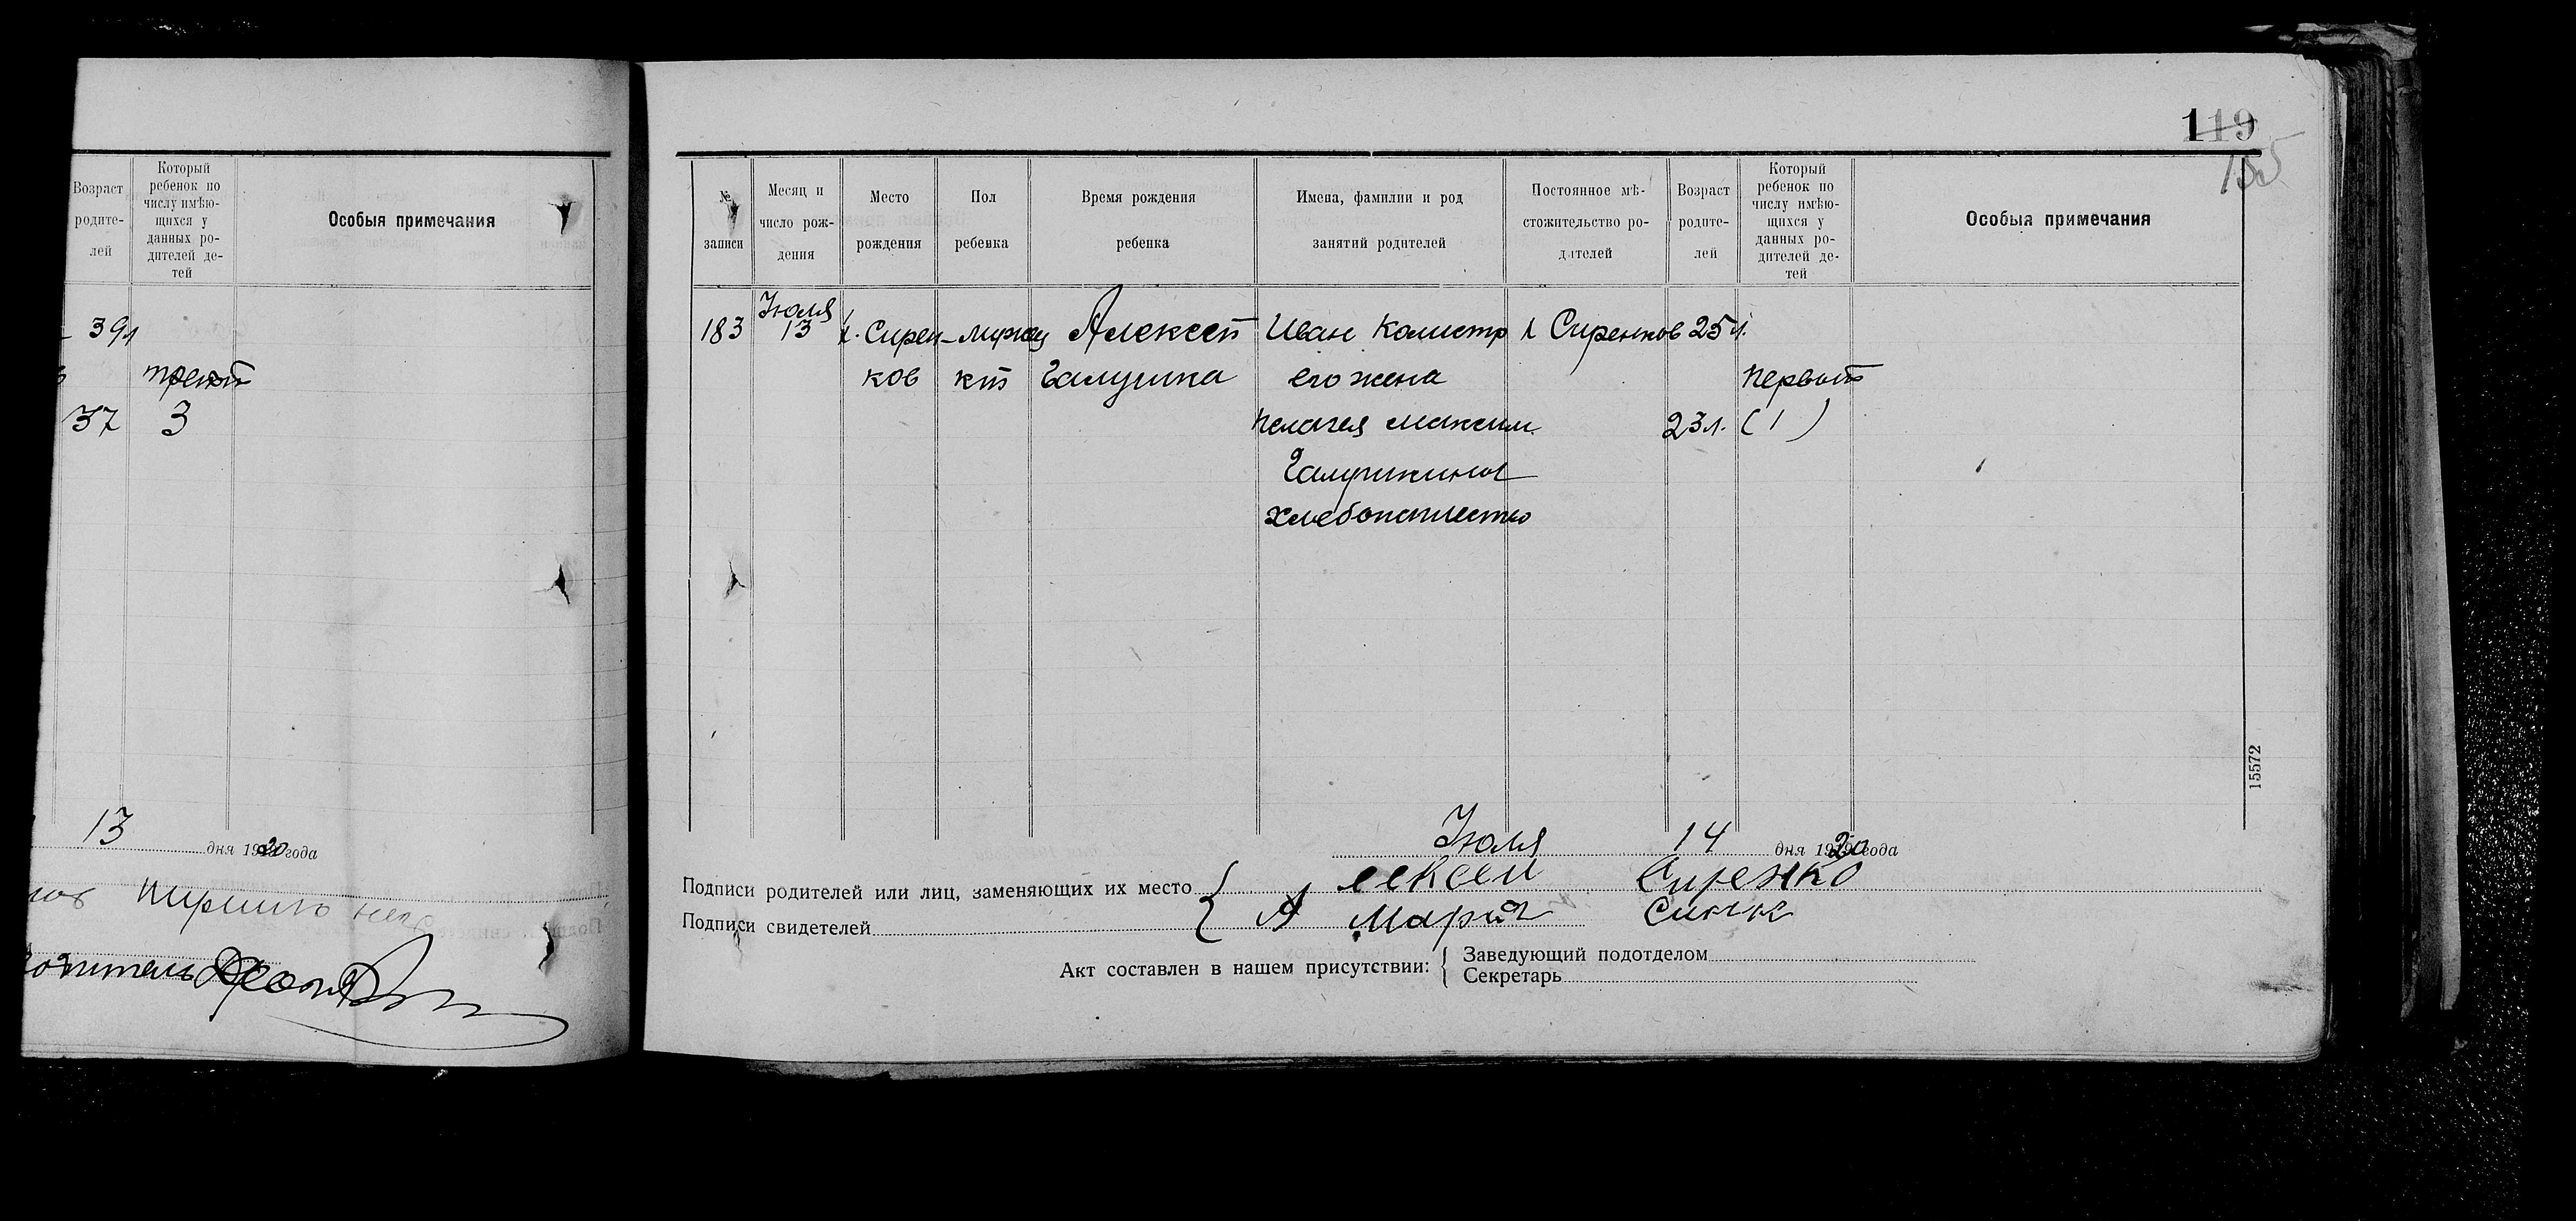 Возраст
родите-
лей
Который
ребенок по
числу имѣю-
щихся у
данных ро-
дителей де-
тей
Особыя примечания
39л
третий
37 3
13 дня 1920 года
119
155
№
записи
Месяц и
число рож-
дения
Место
рождения
Пол
ребенка
Время рождения
ребенка
Имена, фамилии и род
занятий родителей
Постоянное мѣ-
стожительство ро-
дителей
Возраст
родите-
лей
Который
ребенок по
числу имѣю-
щихся у
данных ро-
дителей де-
тей
Особыя примечания
Июля
183 13 х. Сирен- мужс Алексей Иван Калистр х Сиренков 25 л.
ков кий Галушка его жена первый
Пелагея Максим. 23 л. (1)
Галушкины
хлебопашество
15572
Июля 14 дня 1920 года
Подписи родителей или лиц, заменяющих их место Сиренко
Подписи свидетелей Мария
Акт составлен в нашем присутствии:
Заведующий подотделом
Секретарь